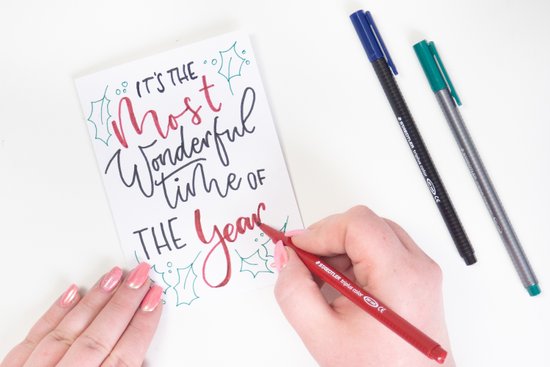 IT'S THE
Most
Wonderful
time OF
THE Year
STAEDTLER triplus color
STAEDTLER triplus color